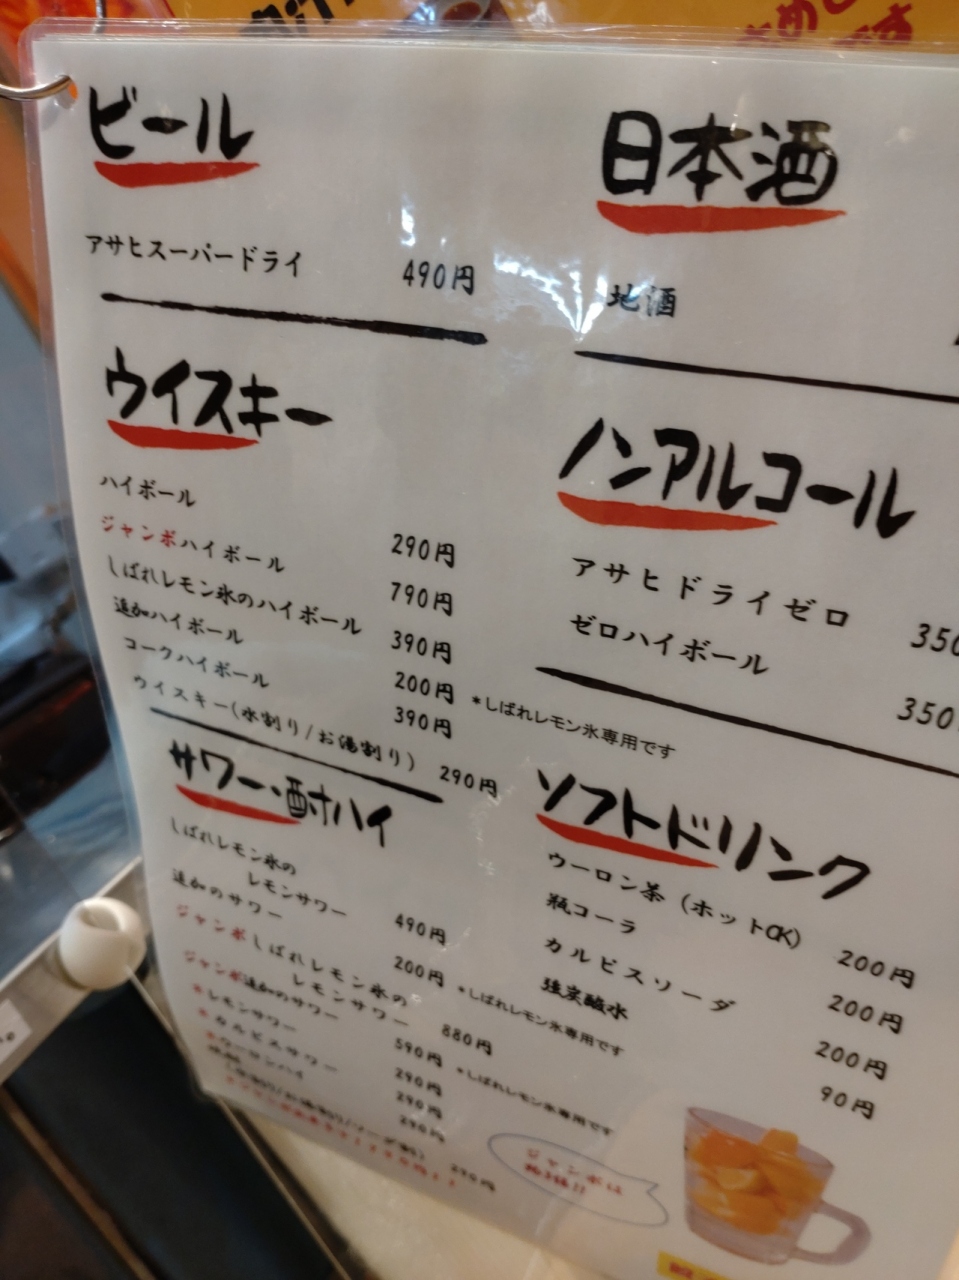 ビール
アサヒスーパードライ 490円
ウイスキー
ハイボール 290円
ジャンボハイボール 790円
しばれレモン氷のハイボール 390円
追加ハイボール 200円 *しばれレモン氷専用です
コークハイボール 390円
ウイスキー(水割り/お湯割り) 290円
サワー・酎ハイ
しばれレモン氷の
レモンサワー 490円
追加のサワー 200円 *しばれレモン氷専用です
ジャンボしばれレモン氷の
レモンサワー 880円
ジャンボ追加のサワー 590円 *しばれレモン氷専用です
*レモンサワー 290円
*カルピスサワー 290円
*ウーロンハイ 290円
290円
ジャンボは
日本酒
地酒
ノンアルコール
アサヒドライゼロ 350
ゼロハイボール 350
ソフトドリンク
ウーロン茶(ホットOK) 200円
瓶コーラ 200円
カルピスソーダ 200円
強炭酸水 90円